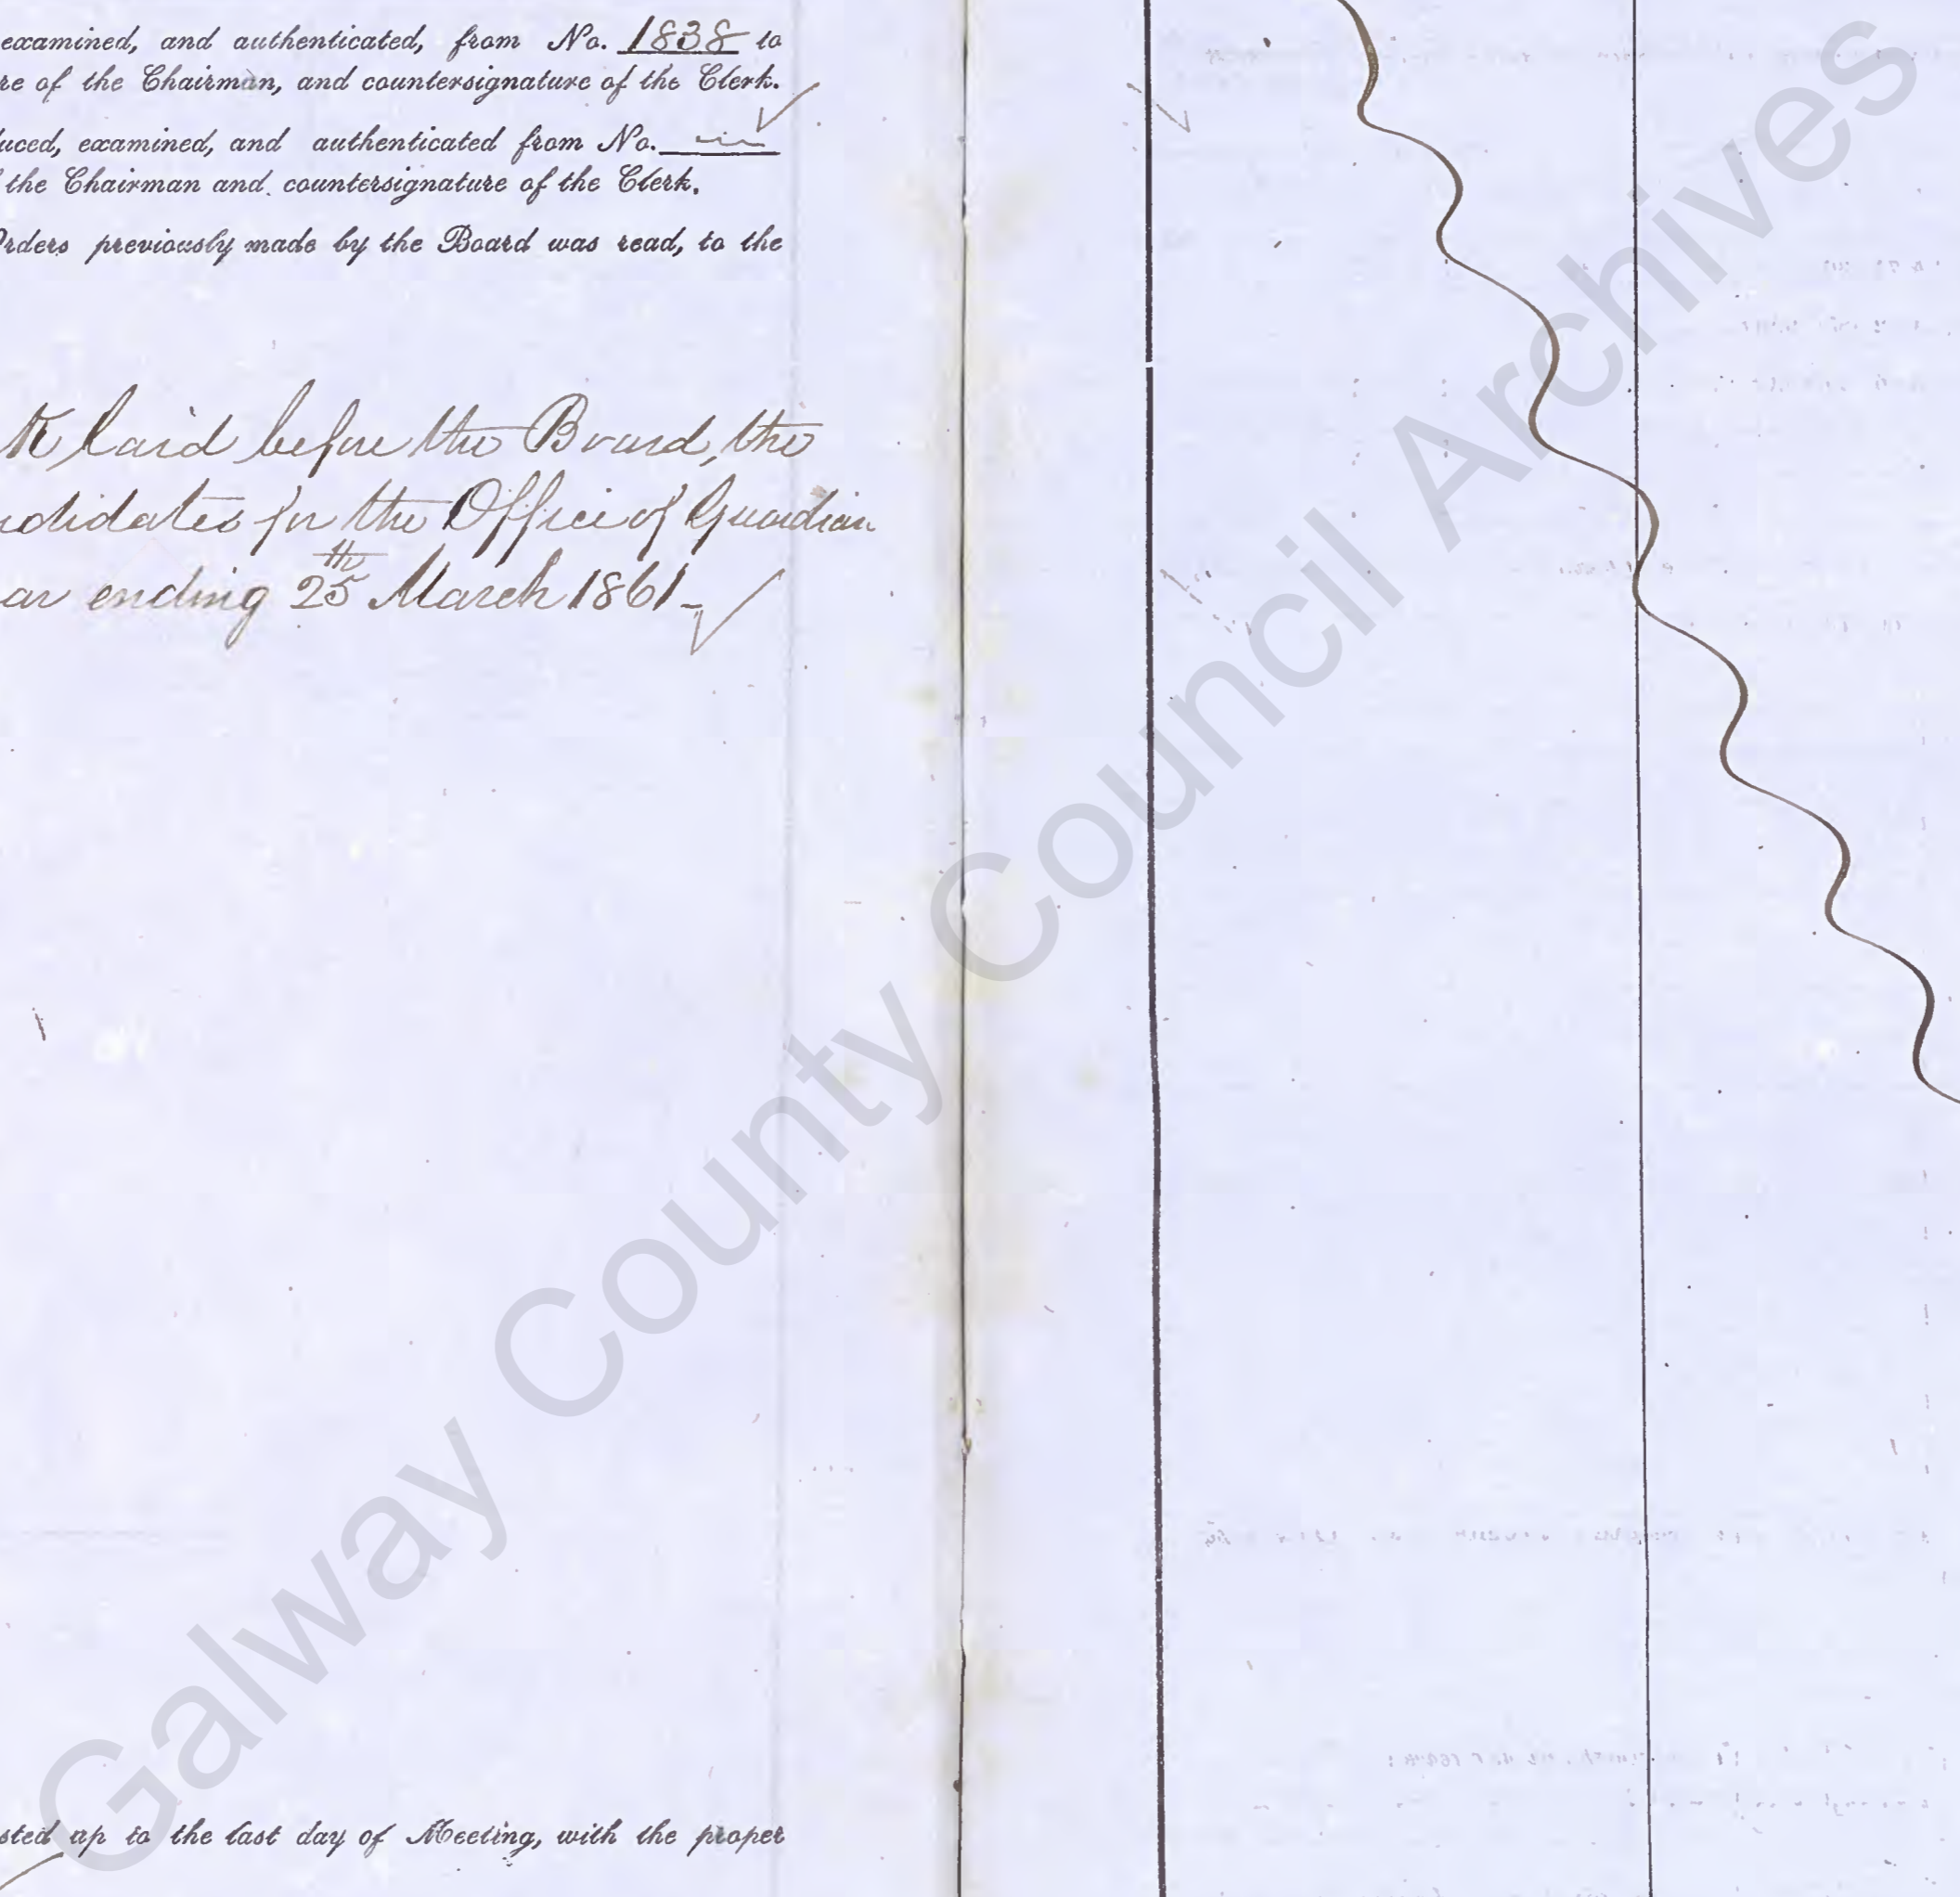 examined, and authenticated, from No. 1838 to
re of the Chairman, and countersignature of the Clerk.
uced, examined, and authenticated from No.
the Chairman and countersignature of the Clerk.
Orders previously made by the Board was read, to the
laid before the Board, the
ndidates for the Office of Guardian
ar ending 25th March 1861
sted up to the last day of Meeting, with the proper
Galway County Council Archives